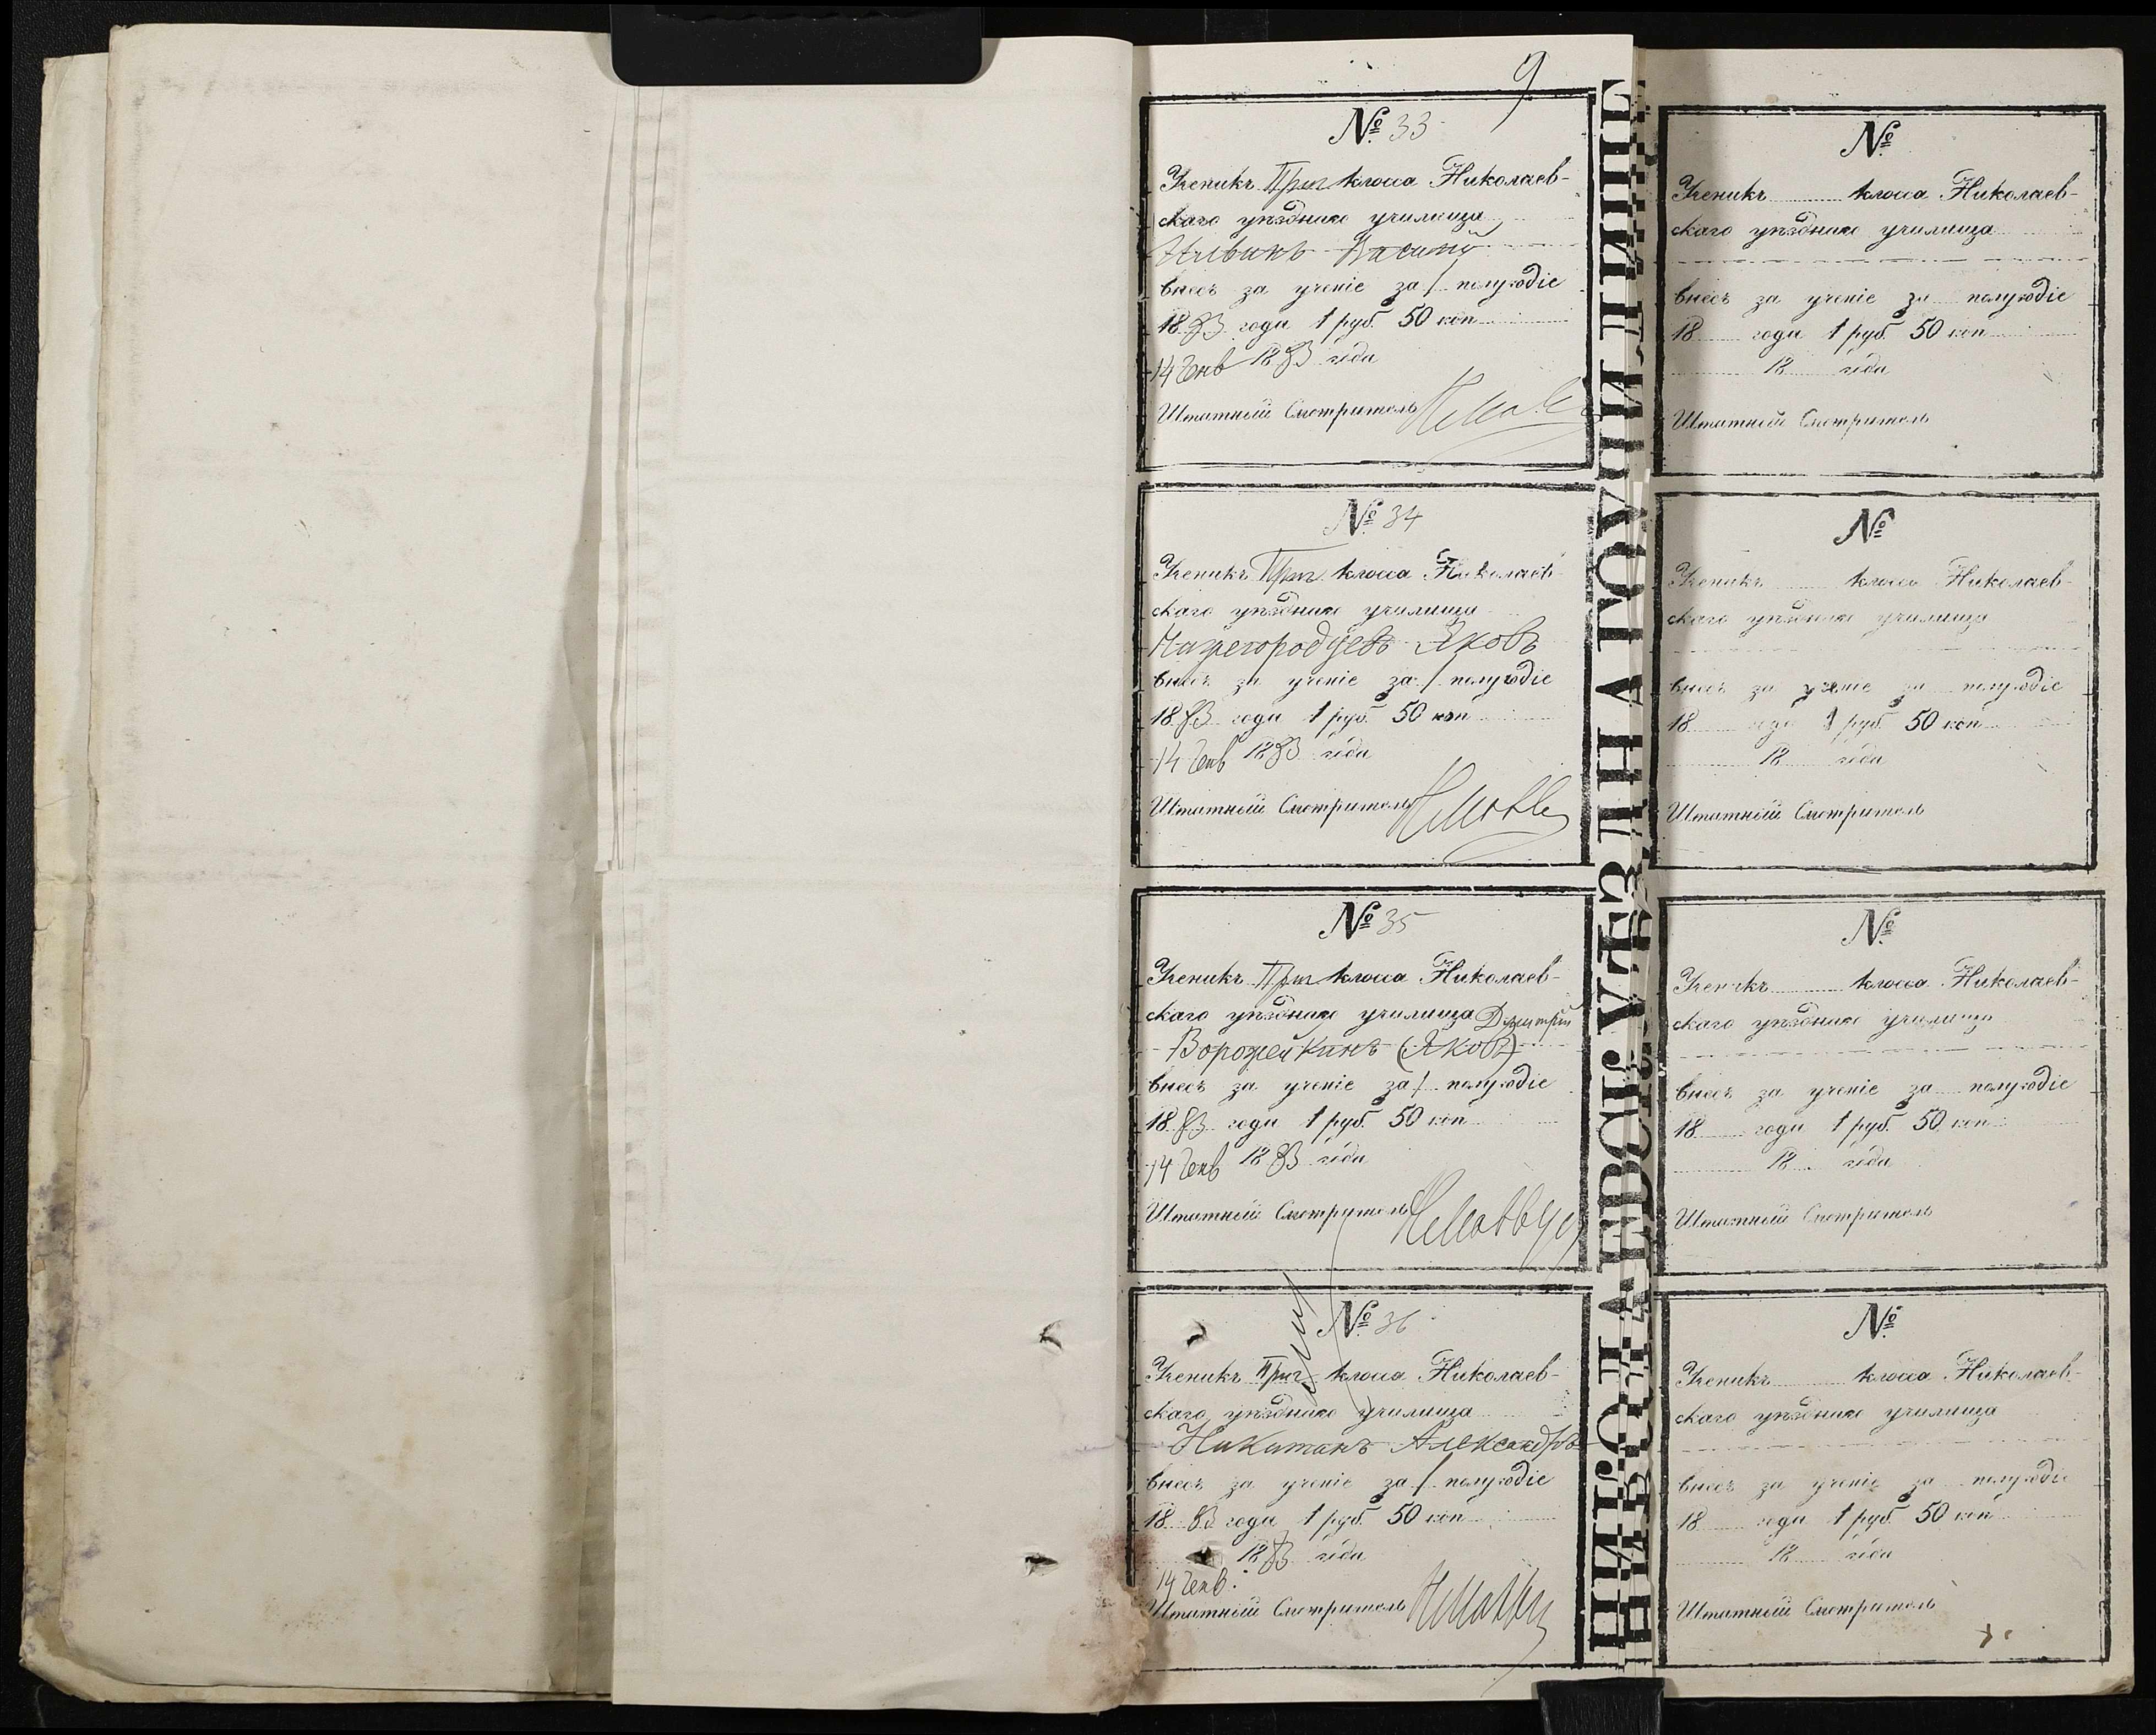 9
№ 33
Ученикъ Приг класса Николаев-
скаго уѣзднаго училища
Василій
внесъ за ученіе за 1 полугодіе
1883 года 1 руб. 50 коп
14 Генв 1883 года
Штатный Смотритель
№ 34
Ученикъ Приг класса Николаев-
скаго уѣзднаго училища
Нажегородцевъ Яковъ
внесъ за ученіе за 1 полугодіе
1883 года 1 руб. 50 коп
14 Генв 1883 года
Штатный Смотритель
№ 35
Ученикъ Приг класса Николаев-
скаго уѣзднаго училища Дмитрій
Ворожейкинъ (Яковъ)
внесъ за ученіе за 1 полугодіе
1883 года 1 руб. 50 коп
14 Генв 1883 года
Штатный Смотритель
№ 36
Ученикъ Приг класса Николаев-
скаго уѣзднаго училища
Никитинъ Александръ
внесъ за ученіе за 1 полугодіе
1883 года 1 руб. 50 коп
1883 года
14 Генв.
Штатный Смотритель
№
Ученикъ класса Николаев-
скаго уѣзднаго училища
внесъ за ученіе за полугодіе
18 года 1 руб. 50 коп
18 года
Штатный Смотритель
№
Ученикъ класса Николаев-
скаго уѣзднаго училища
внесъ за ученіе за полугодіе
18 года 1 руб. 50 коп
18 года
Штатный Смотритель
№
Ученикъ класса Николаев-
скаго уѣзднаго училища
внесъ за ученіе за полугодіе
18 года 1 руб. 50 коп
18 года
Штатный Смотритель
№
Ученикъ класса Николаев-
скаго уѣзднаго училища
внесъ за ученіе за полугодіе
18 года 1 руб. 50 коп
18 года
Штатный Смотритель